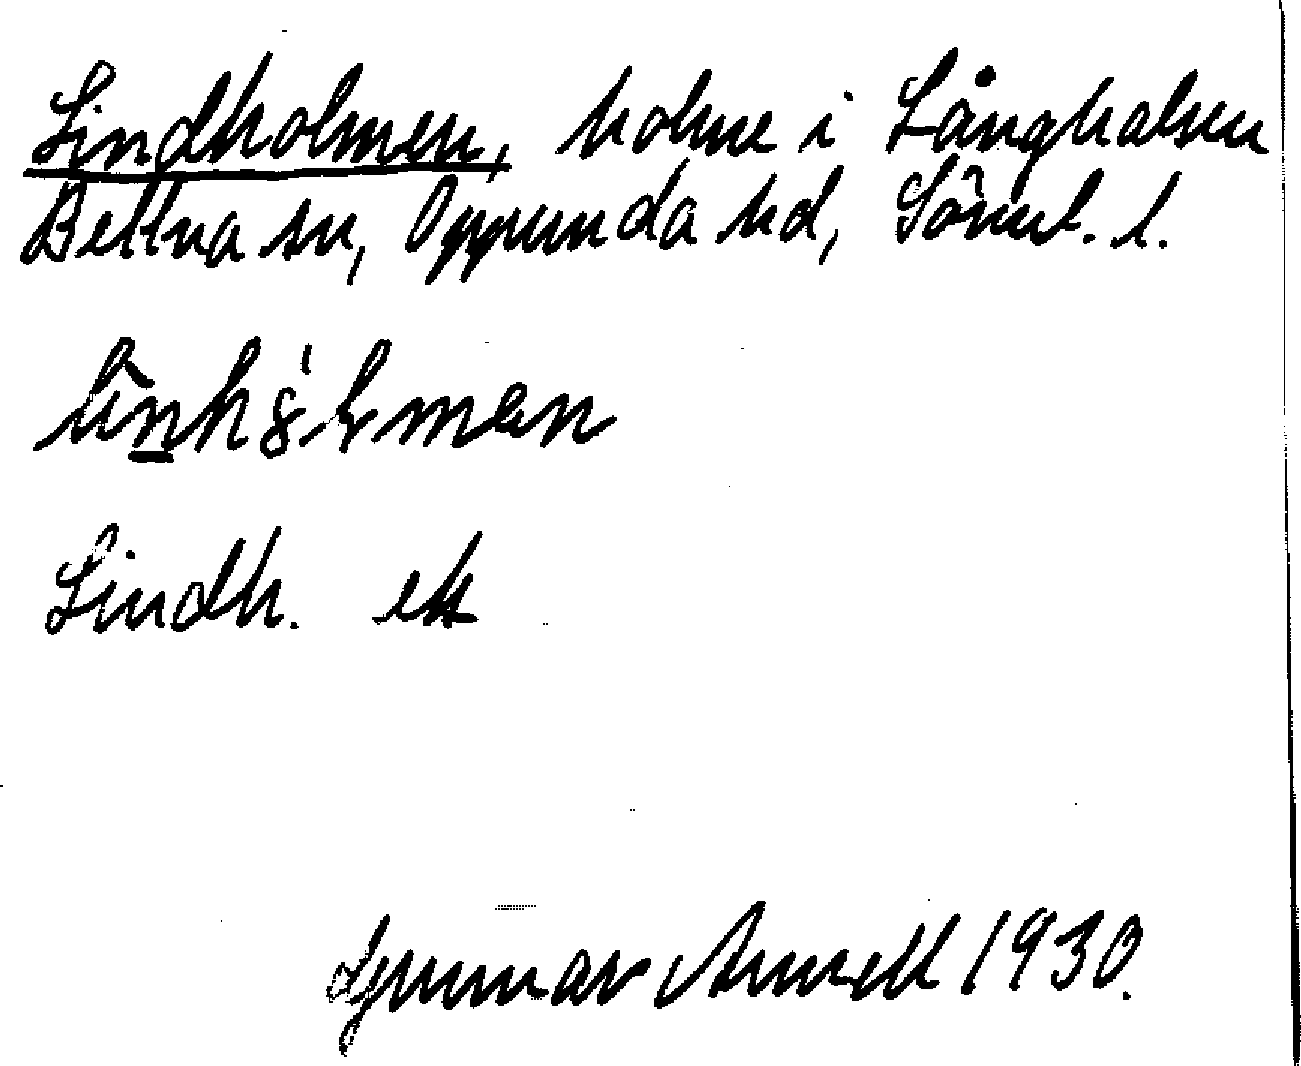 Lindholmen, holme i Långhalsen
Bettna sn, Oppunda hd, Sörml. l.
Lindh. ek
Gunnar Arnell 1930.